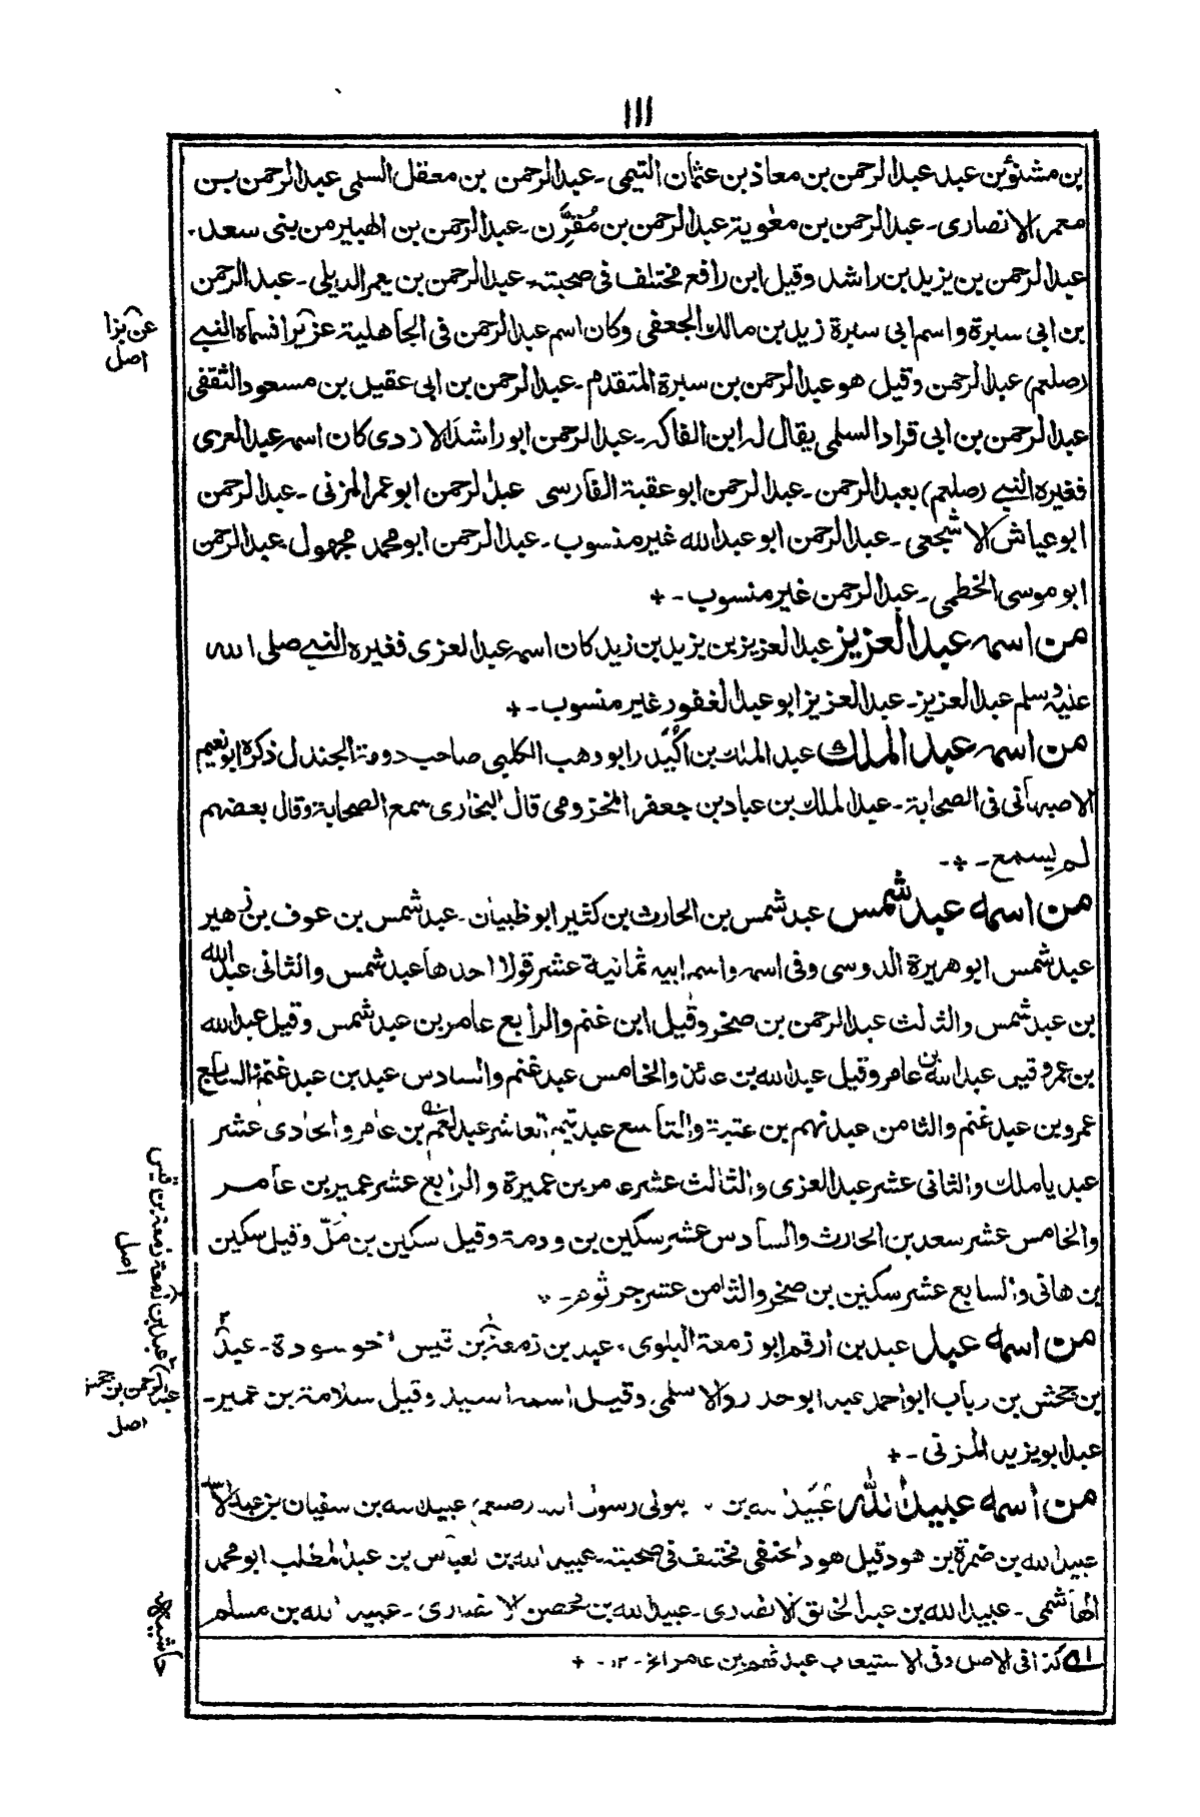 ١١١
بن مشنؤبن عبد عبدالرحمن بن معاذ بن عثمان التيمى ـ عبدالرحمن بن معقل السلمى عبدالرحمن بن
معمر الانصارى ـ عبدالرحمن بن معٰوية عبدالرحمن بن مُقرِّن ـ عبدالرحمن بن الهبير من بنى سعد ـ
عبدالرحمن بن يزيد بن راشد وقيل ابن رافع مختلف فى صحبته ـ عبدالرحمن بن يعمر الديلى ـ عبدالرحمن
بن ابى سبرة واسم ابى سبرة زيد بن مالك الجعفى وكان اسم عبدالرحمن فى الجاهلية عزيرا فسماه النبے
(صلعم) عبدالرحمن وقيل هو عبدالرحمن بن سبرة المتقدم ـ عبدالرحمن بن ابى عقيل بن مسعود الثقفى
عبدالرحمن بن ابى قراد السلمى يقال له ابن الفاكه ـ عبدالرحمن ابو راشد الازدى كان اسمه عبدالعزى
فغيره النبے (صلعم) بعبدالرحمن ـ عبدالرحمن ابو عقبة الفارسى عبدالرحمن ابو عمر المزنى ـ عبدالرحمن
ابو عياش الاشجعى ـ عبدالرحمن ابو عبدالله غير منسوب ـ عبدالرحمن ابو محمد مجهول عبدالرحمن
ابو موسى الخطمى ـ عبدالرحمن غير منسوب ـ +
من اسمه عبدالعزيز عبدالعزيز بن يزيد بن زيد كان اسمه عبدالعزى فغيره النبے صلى الله
عليه وسلم عبدالعزيز ـ عبدالعزيز ابو عبدالغفور غير منسوب ـ +
من اسمه عبدالملك عبدالملك بن اُكَيْدر ابو وهب الكلبى صاحب دومة الجندل ذكره ابو نعيم
الاصبهانى فى الصحابة ـ عبدالملك بن عباد بن جعفر المخزومى قال البخارى سمع الصحابة وقال بعضهم
لم يسمع ـ + ـ
من اسمه عبدشمس عبدشمس بن الحارث بن كثير ابو ظبيان ـ عبدشمس بن عوف بن زهير
عبدشمس ابو هريرة الدوسى وفى اسمه واسم ابيه ثمانية عشر قولا احدها عبدشمس والثانى عبدالله
بن عبدشمس والثالث عبدالرحمن بن صخر وقيل ابن غنم والرابع عامر بن عبدشمس وقيل عبدالله
بن عمرو قيل عبدالله بن عامر وقيل عبدالله بن عائذ والخامس عبدغنم والسادس عبد بن عبدغنم والسابع
عمرو بن عبدغنم والثامن عبدنهم بن عتبة والتاسع عبدتيم العاشر عبدالعم بن عامر والحادى عشر
عبدياملك والثانى عشر عبدالعزى والثالث عشر عامر بن عميرة والرابع عشر عمير بن عامر
والخامس عشر سعد بن الحارث والسادس عشر سكين بن ودمة وقيل سكين بن مَلّ وقيل سكين
بن هانى والسابع عشر سكين بن صخر والثامن عشر جرثومـ
من اسمه عبد عبد بن ارقم ابو زمعة البلوى، عبد بن زمعة بن قيس اخو سودة ـ عبد
بن جحش بن رباب ابو احمد عبد ابو حدرد الاسلمى وقيل اسمه اسيد وقيل سلامة بن عمير ـ
عبد ابو يزيد المزنى ـ +
من اسمه عبيدالله عُبَيْد الله بن مولى رسول الله (صلعم) عبيدالله بن سفيان بن عبدالاسد
عبيدالله بن ضمرة بن هود قيل هو الحنفى مختلف فى صحبته ـ عبيدالله بن العباس بن عبدالمطلب ابو محمد
الهاشمى ـ عبيدالله بن عبدالخالق الانصارى ـ عبيدالله بن محصن الانصارى ـ عبيدالله بن مسلم
له كذا فى الاصل وفى الاستيعاب عبد نهم بن عامر الخ ـ ١٢ ـ +
عن بزا
اصل
عبد بن زمعة زمعة بن قيس
اصل
عبدالرحمن بن جحش
اصل
حاشيه